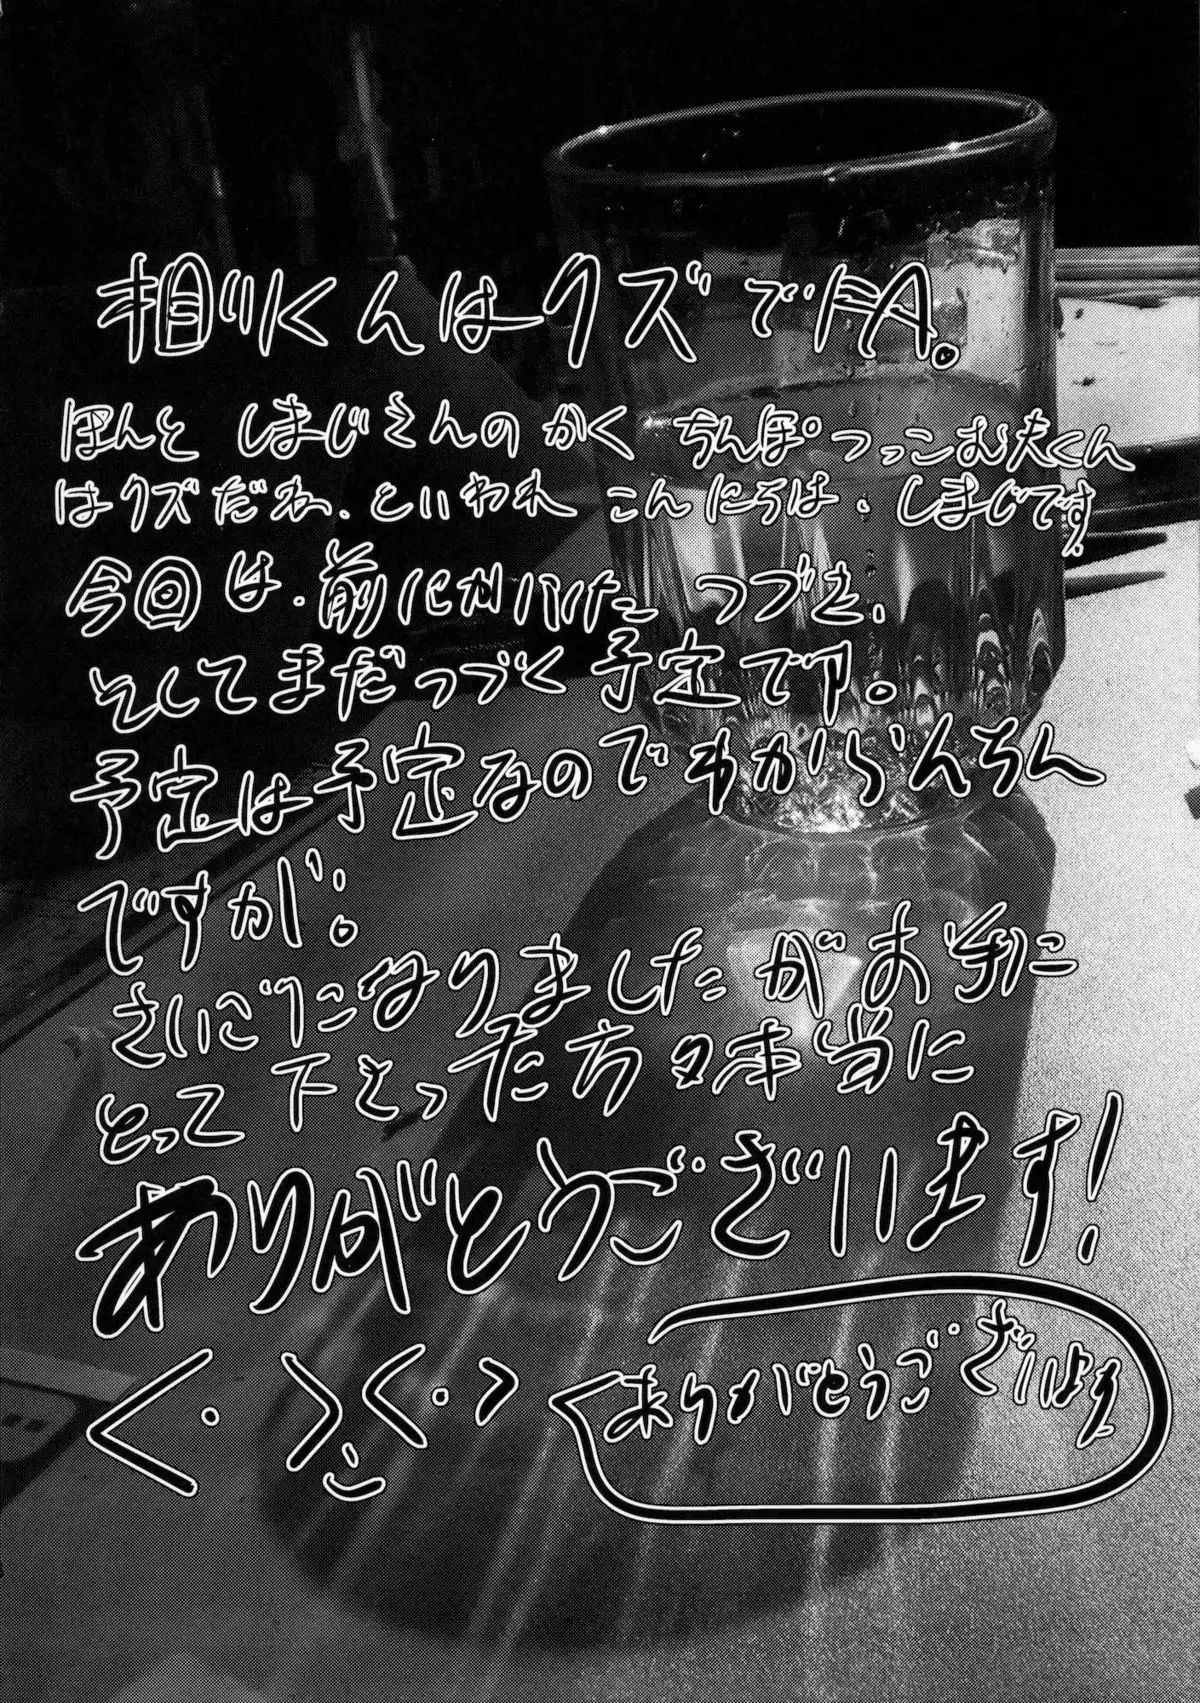 相川くんはクズでFA。
ほんと しまじさんのかく ちんぽつっこむ夫くん
はクズだね、といわれ こんにちは、しまじです
今回は、前にかいた つづき、
そしてまだつづく予定です。
予定は予定なのでわからんちん
ですが。
さいごになりましたがお手に
とって下さった方々本当に
ありがとうございます!
<・>こ<・>
ありがとうございます